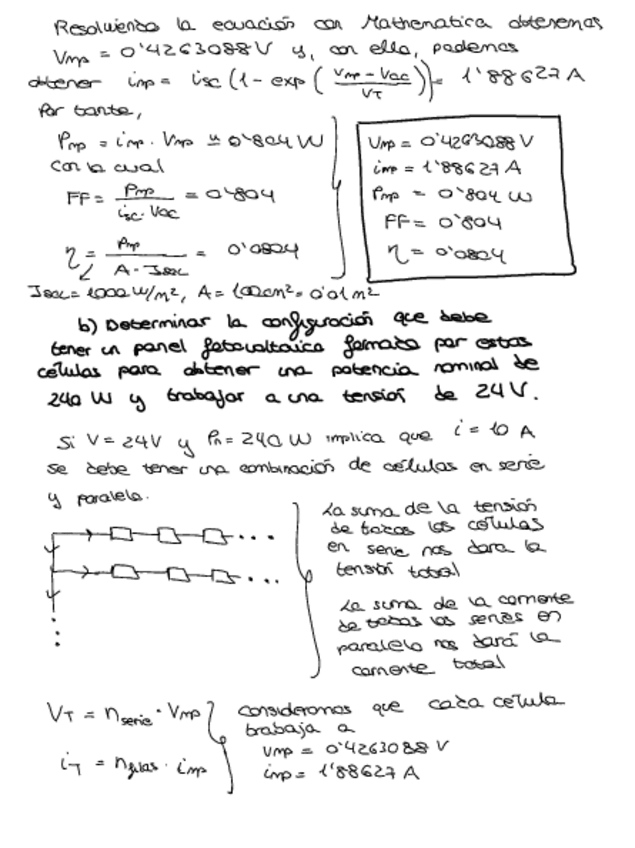 Resolviendo la ecuación con Mathematica obtenemos
Vmp = 0'4263088 V y, con ello, podemos
obtener imp = isc (1 - exp ( (Vmp - Voc) / VT )) = 1'88627 A
Por tanto,
Pmp = imp · Vmp ≃ 0'804 W
con lo cual
FF = Pmp / (isc · Voc) = 0'804
η = Pmp / (A · Jsol) = 0'0804
Jsol = 1000 W/m², A = 100 cm² = 0'01 m²
Vmp = 0'4263088 V
imp = 1'88627 A
Pmp = 0'804 W
FF = 0'804
η = 0'0804
b) Determinar la configuración que debe
tener un panel fotovoltaico formado por estas
células para obtener una potencia nominal de
240 W y trabajar a una tensión de 24 V.
Si V = 24V y Pn = 240 W implica que i = 10 A
se debe tener una combinación de células en serie
y paralelo.
La suma de la tensión
de todas las células
en serie nos dara la
tensión total
La suma de la corriente
de todas las series en
paralelo nos dará la
corriente total
VT = nserie · Vmp
iT = nfilas · imp
consideramos que cada célula
trabaja a
Vmp = 0'4263088 V
imp = 1'88627 A